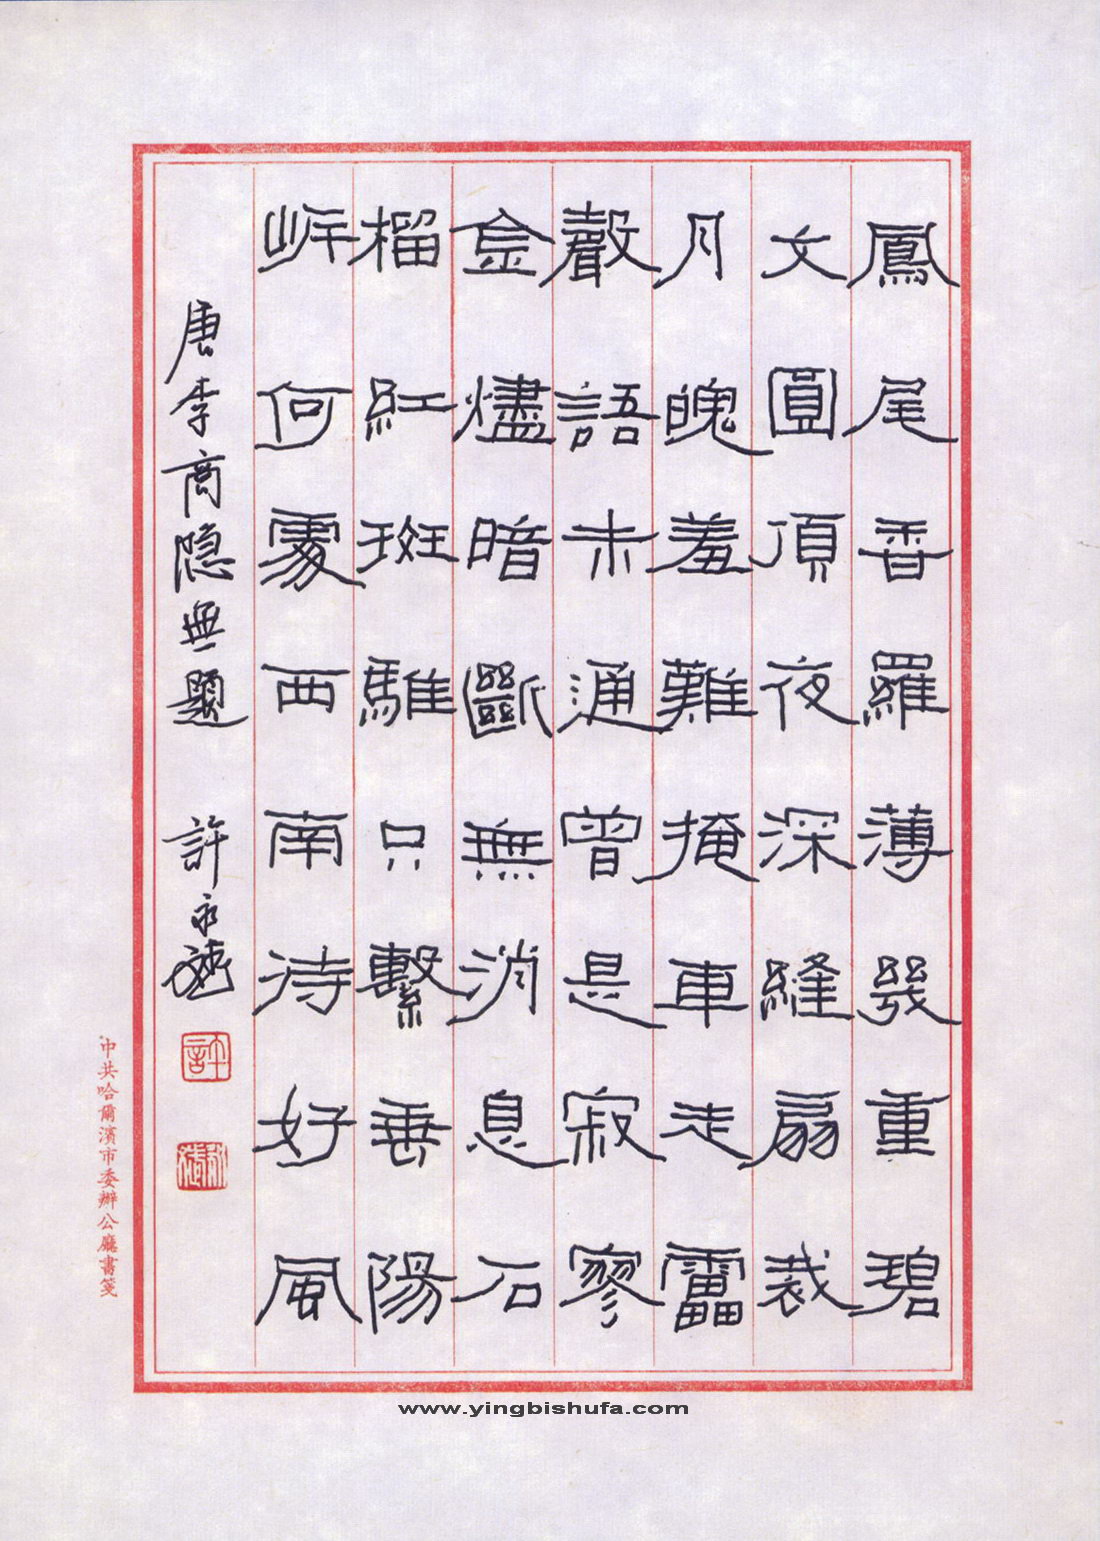 鳳尾香羅薄幾重碧
文圓頂夜深縫扇裁
月魄羞難掩車走靁
聲語未通曾是寂寥
金燼暗斷無消息石
榴紅斑騅只繫垂陽
岸何處西南待好風
唐李商隐無題 許永
許
中共哈爾濱市委辦公廳書箋
www.yingbishufa.com